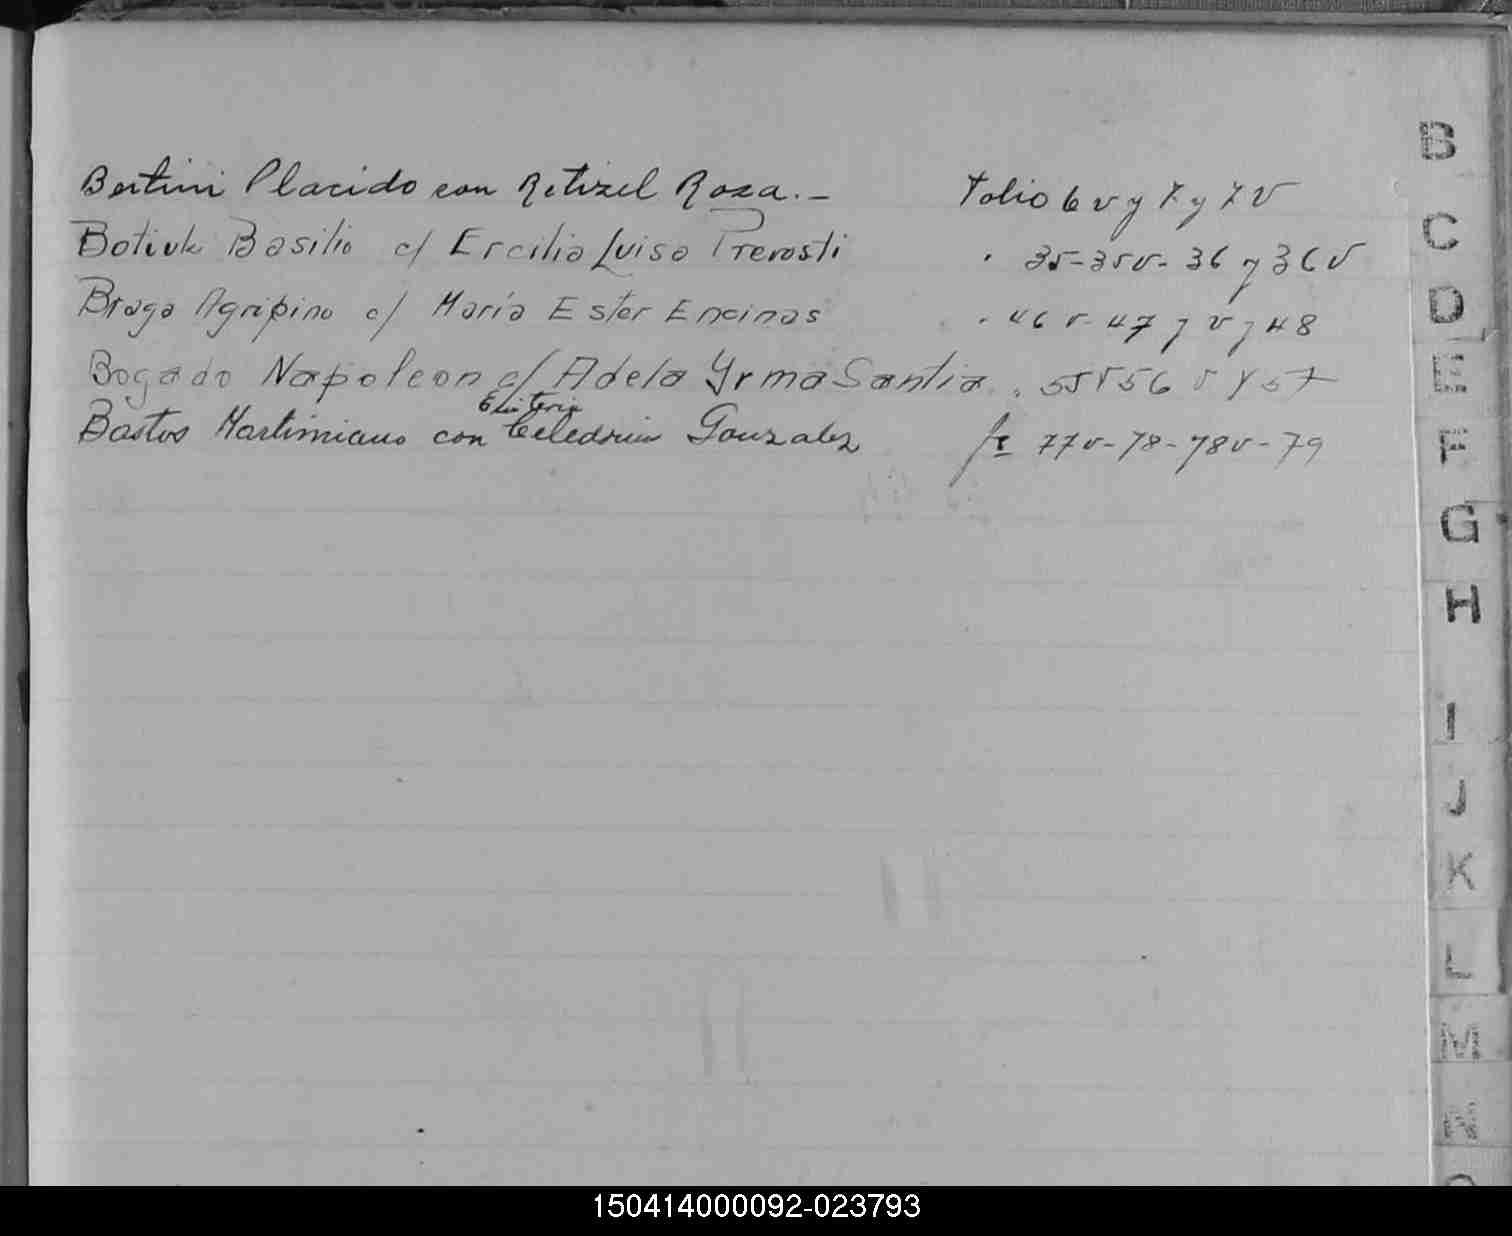 Bertini Placido con Retizel Rosa.- Folio 6 v y 7 y 7 v
Botiuk Basilio c/ Ercilia Luisa Prevosti " 35-35v-36 y 36 v
Braga Agripino c/ María Ester Encinas " 46 v-47 y v y 48
Bogado Napoleon c/ Adela Yrma Santia " 55 v 56 v y 57
Bastos Martimiano con Celedonia Gonzalez fs 77v-78-78v-79
B
C
D
E
F
G
H
I
J
K
L
M
150414000092-023793